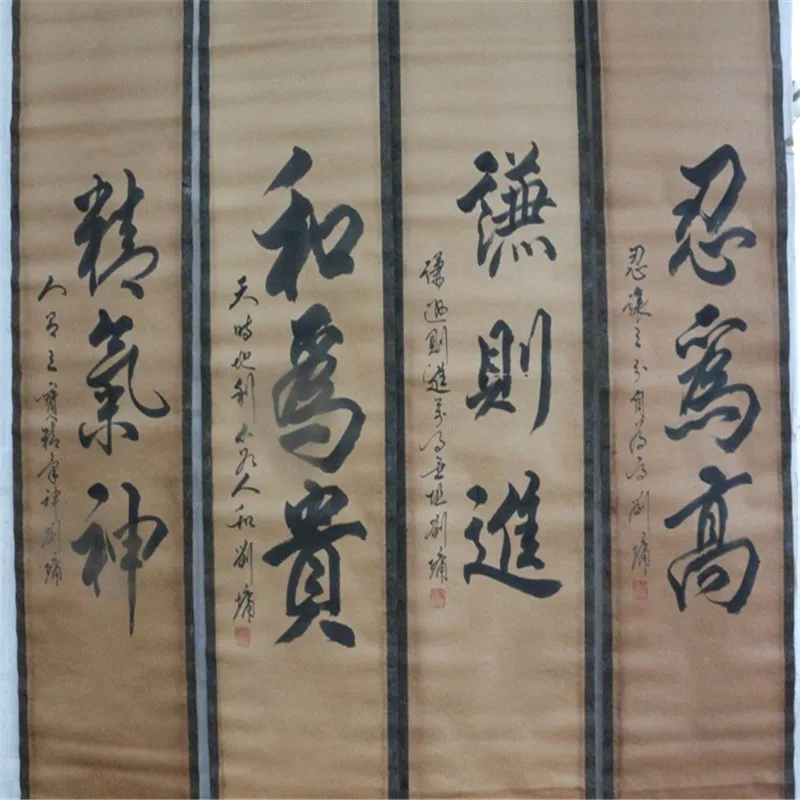 忍為高
忍讓之分有為高 劉墉
謙則進
謙遜則進萬事無阻 劉墉
和為貴
天時地利不如人和 劉墉
精氣神
人有三寶精氣神 劉墉